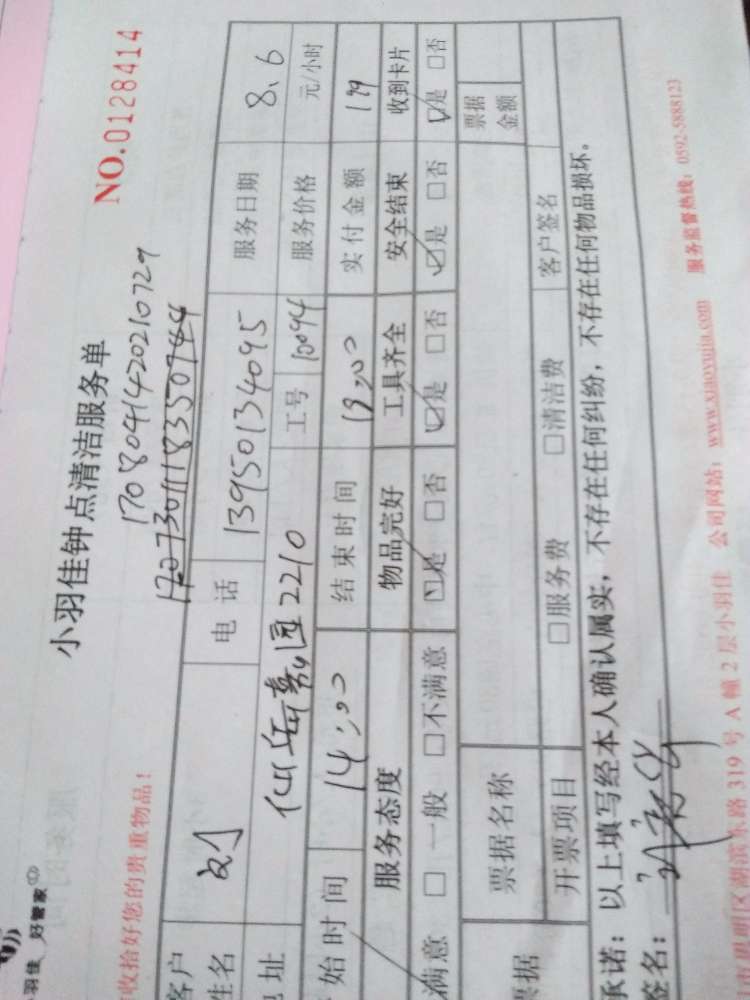 羽佳 好管家
小羽佳钟点清洁服务单
NO.0128414
收拾好您的贵重物品！
1708041420210729
客户姓名 刘 电话 13950134095 服务日期 8.6
地址 2210 工号 10094 服务价格 元/小时
始时间 14:00 结束时间 18:00 实付金额 199
服务态度 物品完好 工具齐全 安全结束 收到卡片
满意 □一般 □不满意 ☑是 □否 ☑是 □否 ☑是 □否 ☑是 □否
票据 票据名称 票据金额
开票项目 □服务费 □清洁费 客户签名
承诺：以上填写经本人确认属实，不存在任何纠纷，不存在任何物品损坏。
签名：
湖滨东路 319 号 A 幢 2 层小羽佳 公司网站：www.xiaoyujia.com 服务监督热线：0592-5888123